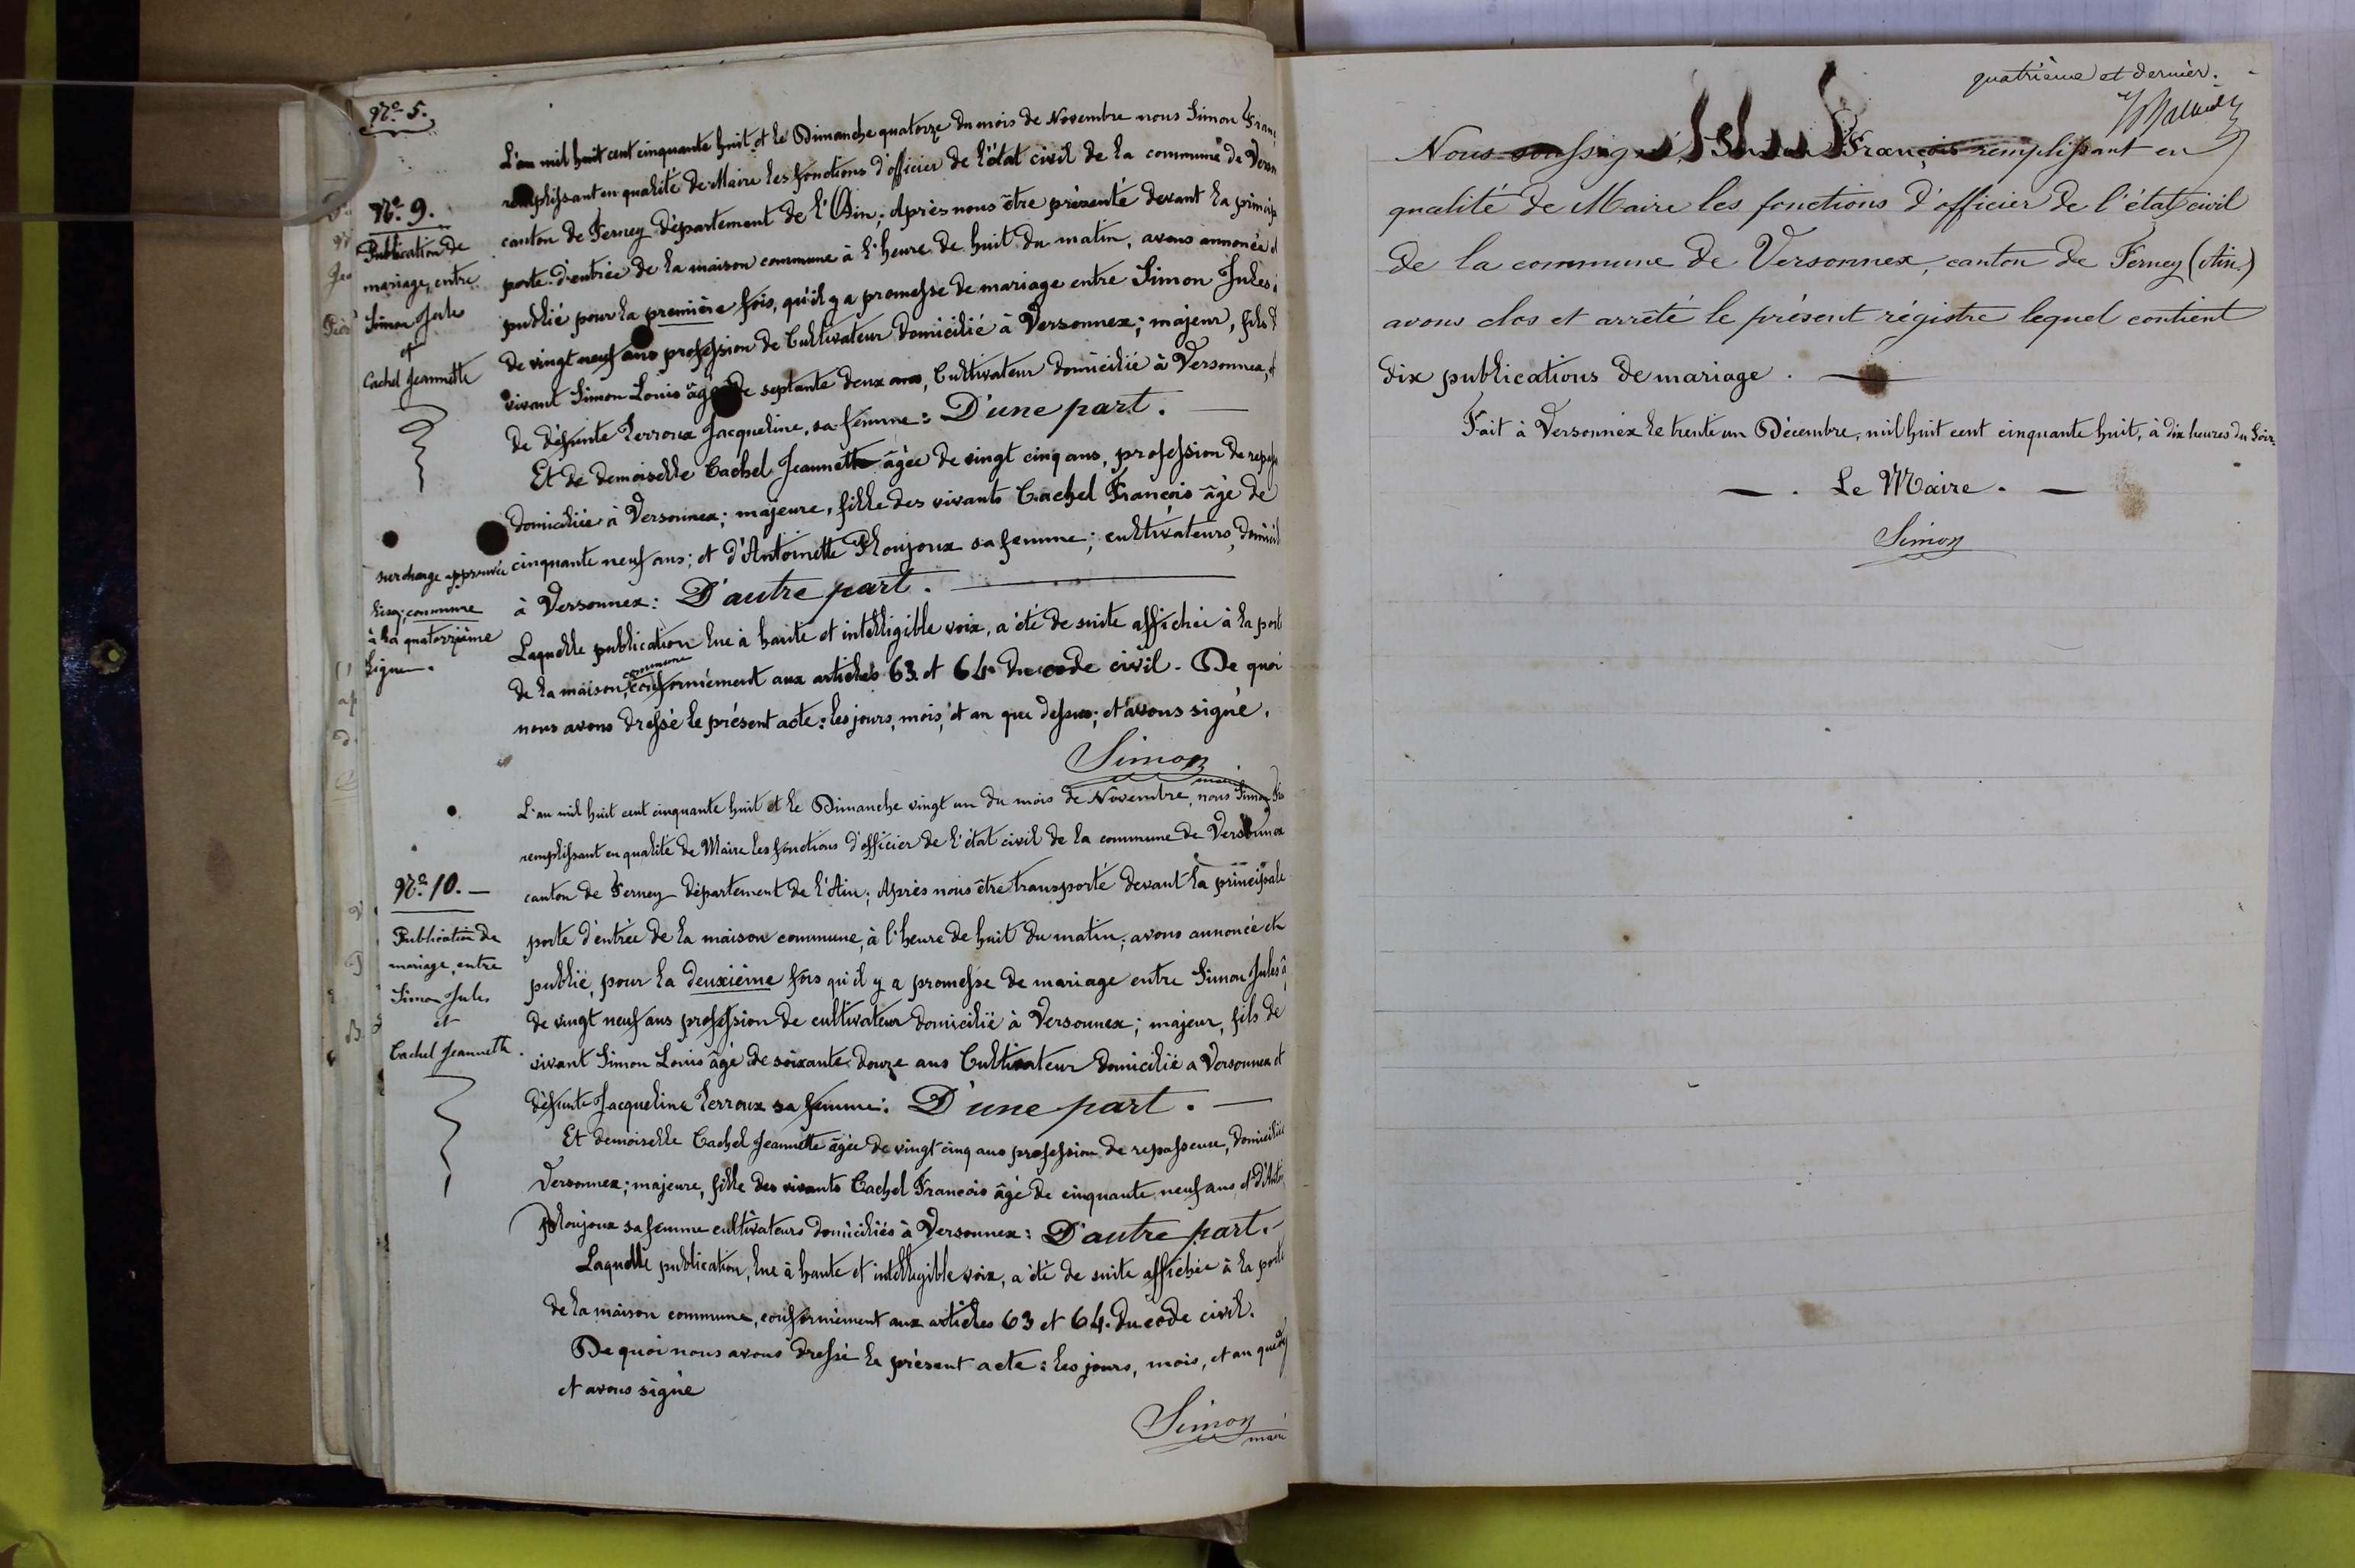 N.º 5.
N.º 9.
Publication de
mariage, entre
Simon Jules
et
Cachel Jeannette
surcharge approuvée
lisez; commune
à la quatorzième
ligne.
L'an mil huit cent cinquante huit et le Dimanche quatorze du mois de Novembre nous Simon Fran
remplissant en qualité de Maire les fonctions d'officier de l'état civil de la commune de Verson
canton de Ferney département de l'Ain; Après nous être présenté devant la princip
porte d'entrée de la maison commune à l'heure de huit du matin, avons annoncé
publié pour la première fois, qu'il y a promesse de mariage entre Simon Jules
de vingt neuf ans profession de Cultivateur domicilié à Versonnex; majeur, fils
vivant Simon Louis âgé de septante deux ans, Cultivateur domicilié à Versonnex,
de défunte Perroux Jacqueline, sa femme: D'une part.
Et de demoiselle Cachel Jeannette âgée de vingt cinq ans, profession de repass
domiciliée à Versonnex; majeure, fille des vivants Cachel François âgé de
cinquante neuf ans; et d'Antoinette Ploujoux sa femme; cultivateurs, domicil
à Versonnex: D'autre part.
Laquelle publication lue à haute et intelligible voix, a été de suite affichée à la port
commune
de la maison, conformément aux articles 63. et 64. du code civil. De quoi
nous avons dressé le présent acte: les jours, mois, et an que dessus; et avons signé.
Simon
maire
N.º 10.
Publication de
mariage, entre
Simon Jules
et
Cachel Jeannette.
L'an mil huit cent cinquante huit et le Dimanche vingt un du mois de Novembre, nous Simon
remplissant en qualité de Maire les fonctions d'officier de l'état civil de la commune de Versonnex
canton de Ferney département de l'Ain; Après nous être transporté devant la principale
porte d'entrée de la maison commune, à l'heure de huit du matin; avons annoncé et
publié, pour la deuxième fois qu'il y a promesse de mariage entre Simon Jules â
de vingt neuf ans profession de cultivateur domicilié à Versonnex; majeur, fils de
vivant Simon Louis âgé de soixante douze ans Cultivateur domicilié a Versonnex et
défunte Jacqueline Perroux sa femme: D'une part.
Et demoiselle Cachel Jeannette âgée de vingt cinq ans profession de repasseuse, domiciliée
Versonnex; majeure, fille des vivants Cachel François âgé de cinquante neuf ans, et d'Antoi
Ploujoux sa femme cultivateurs domiciliés à Versonnex: D'autre part.
Laquelle publication, lue à haute et intelligible voix, a été de suite affichée à la porte
de la maison commune, conformément aux articles 63 et 64. du code civil.
De quoi nous avons dressé le présent acte: les jours, mois, et an que
et avons signé
Simon
maire
quatrième et dernier.
Nous soussigné Simon François remplissant en
qualité de Maire les fonctions d'officier de l'état civil
de la commune de Versonnex, canton de Ferney (Ain)
avons clos et arrêté le présent régistre lequel contient
dix publications de mariage.
Fait à Versonnex le trente un Décembre, mil huit cent cinquante huit, à dix heures du soir.
Le Maire.
Simon